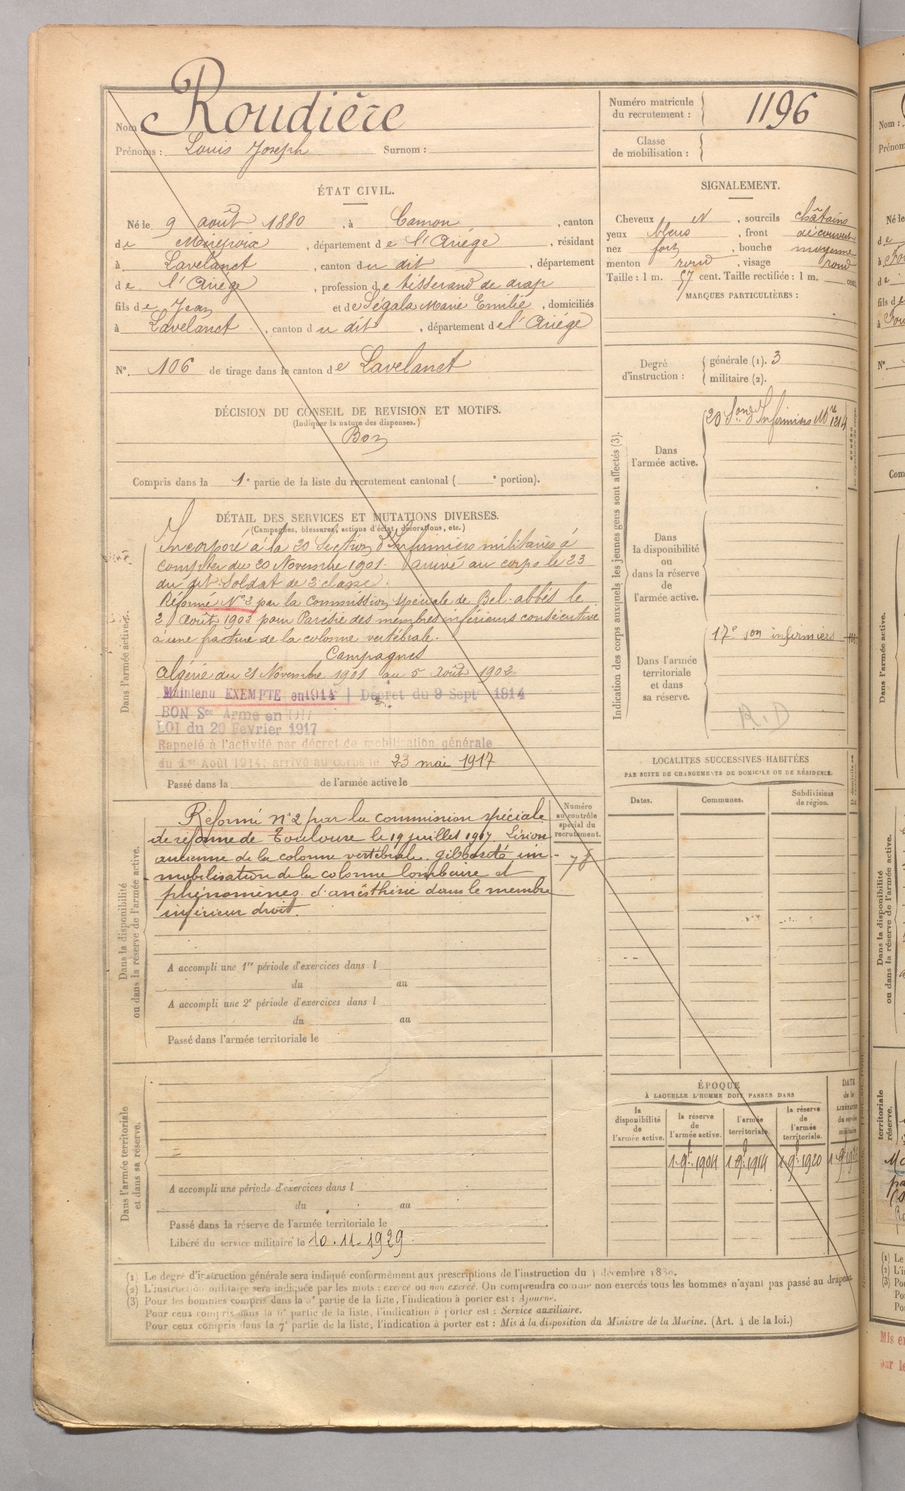 Nom : Roudière
Prénoms : Louis Joseph Surnom :
Numéro matricule du recrutement : 1196
Classe de mobilisation :
ÉTAT CIVIL.
Né le 9 août 1880, à Camon, canton
de Mirepoix, département de l'Ariège, résidant
à Lavelanet, canton du dit, département
de l'Ariège, profession de tisserand de drap
fils de Jean et de Ségala Marie Emilie, domiciliés
à Lavelanet, canton du dit, département de l'Ariège
N° 106 de tirage dans le canton de Lavelanet
SIGNALEMENT.
Cheveux N, sourcils châtains
yeux bleus, front découvert
nez fort, bouche moyenne
menton rond, visage rond
Taille : 1 m. 57 cent. Taille rectifiée : 1 m. cent.
MARQUES PARTICULIÈRES :
Degré d'instruction : générale (1). 3
militaire (2).
DÉCISION DU CONSEIL DE REVISION ET MOTIFS.
(Indiquer la nature des dispenses.)
Bon
Compris dans la 1e partie de la liste du recrutement cantonal ( e portion).
DÉTAIL DES SERVICES ET MUTATIONS DIVERSES.
(Campagnes, blessures, actions d'éclat, décorations, etc.)
Dans l'armée active.
Incorporé à la 20 Section d'Infirmiers militaires à
compter du 20 Novembre 1901. Arrivé au corps le 23
du dit. Soldat de 2 classe.
Réformé N° 2 par la Commission spéciale de Bel-abbès le
2 Août 1902 pour Parésie des membres inférieurs consécutive
à une fracture de la colonne vertébrale.
Campagnes
Algérie du 21 Novembre 1901 au 5 Août 1902
Maintenu EXEMPTE en 1914 | Décret du 9 Sept 1914
BON Sce Armé en 1917
LOI du 20 Février 1917
Rappelé à l'activité par décret de mobilisation générale
du 1er Août 1914, arrivé au corps le 23 mai 1917
Passé dans la de l'armée active le
Indication des corps auxquels les jeunes gens sont affectés (3).
Dans l'armée active. 20 Son d'Infirmiers Mres 1214
Dans la disponibilité ou dans la réserve de l'armée active.
Dans l'armée territoriale et dans sa réserve. 17e Son infirmiers
R.D
LOCALITES SUCCESSIVES HABITÉES
PAR SUITE DE CHANGEMENTS DE DOMICILE OU DE RÉSIDENCE.
Dates. Communes. Subdivisions de région.
Dans la disponibilité ou dans la réserve de l'armée active.
Numéro au contrôle spécial du recrutement.
Réformé n° 2 par la commission spéciale
de réforme de Toulouse le 19 juillet 1917 Lésion
ancienne de la colonne vertébrale, gibbosité im-
mobilisation de la colonne lombaire et
phénomènes d'anésthésie dans le membre
inférieur droit.
A accompli une 1re période d'exercices dans l
du au
A accompli une 2e période d'exercices dans l
du au
Passé dans l'armée territoriale le
ÉPOQUE
À LAQUELLE L'HOMME DOIT PASSER DANS
la disponibilité de l'armée active. la réserve de l'armée active. l'armée territoriale. la réserve de l'armée territoriale. DATE de la LIBÉRATION du service militaire.
1 9b 1904 1 9b 1914 1 9b 1920
Dans l'armée territoriale et dans sa réserve.
A accompli une période d'exercices dans l
du au
Passé dans la réserve de l'armée territoriale le
Libéré du service militaire le 10.11.1929
(1) Le degré d'instruction générale sera indiqué conformément aux prescriptions de l'instruction du décembre
(2) L'instruction militaire sera indiquée par les mots : exercé ou non exercé. On comprendra comme non exercés tous les hommes n'ayant pas passé au drapeau.
(3) Pour les hommes compris dans la partie de la liste, l'indication à porter est : Ajourné.
Pour ceux compris dans la 6e partie de la liste, l'indication à porter est : Service auxiliaire.
Pour ceux compris dans la 7e partie de la liste, l'indication à porter est : Mis à la disposition du Ministre de la Marine. (Art. 4 de la loi.)